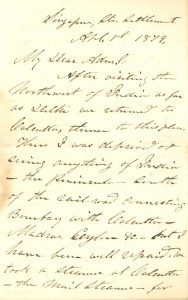 Singapore, Str. Settlement
April 1st 1879,
My Dear Adml.
After visiting the
Northwest of India as far
as Delhi we returned to
Calcutta, thence to this place.
Thus I was deprived of
seeing anything of India
– the peninsula – South
of the rail road connecting
Bombay with Calcutta –
Madras, Ceylon &c – but I
have been well repaid. We
took a steamer at Calcutta
– the Mail Steamer – for